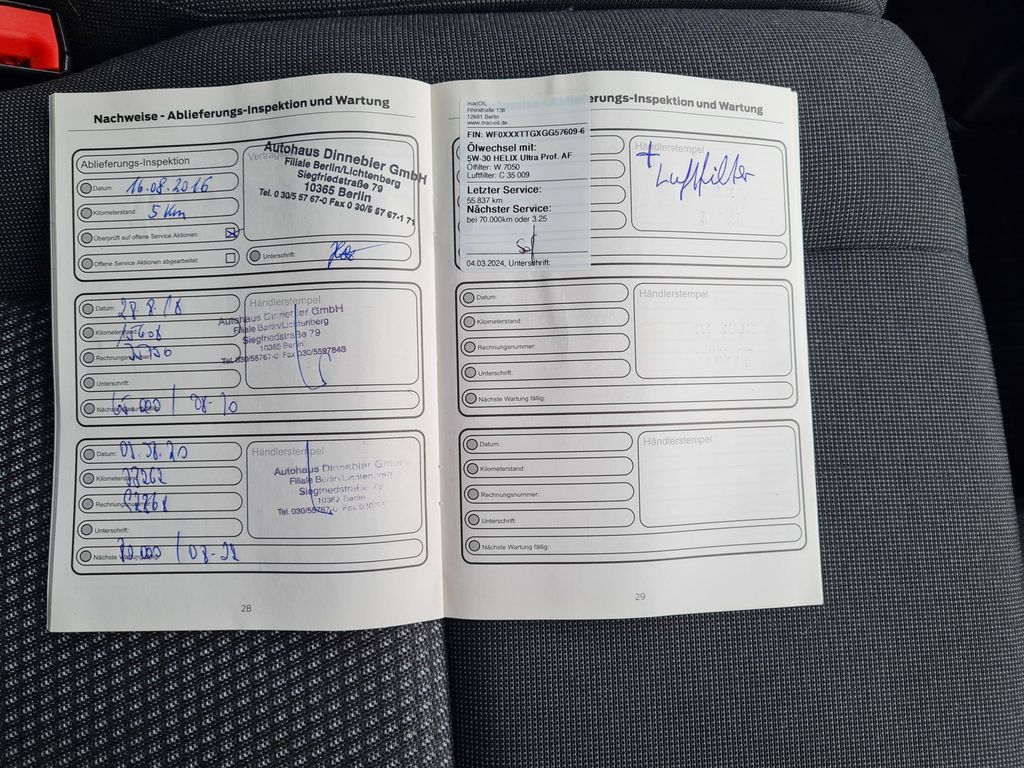 Nachweise - Ablieferungs-Inspektion und Wartung
Ablieferungs-Inspektion
Datum: 16.08.2016
Kilometerstand: 5 km
Überprüft auf offene Service Aktionen:
Offene Service Aktionen abgearbeitet:
Autohaus Dinnebier GmbH
Filiale Berlin/Lichtenberg
Siegfriedstraße 79
10365 Berlin
Tel. 0 30/5 57 67-0 Fax 0 30/5 57 67-1 71
Unterschrift:
Datum: 28.8.18
Kilometerstand:
Rechnungsnummer:
Unterschrift:
Händlerstempel
Autohaus Dinnebier GmbH
Filiale Berlin/Lichtenberg
Siegfriedstraße 79
10365 Berlin
Tel. 030/55767-0 Fax 030/5597846
08-20
Datum: 03.08.20
Rechnungsnummer:
Unterschrift:
Händlerstempel
Autohaus Dinnebier GmbH
Filiale Berlin/Lichtenberg
Siegfriedstraße 79
10365 Berlin
Tel. 030/55767-0 Fax 030/55
/ 08-22
28
erungs-Inspektion und Wartung
macOIL
Rhinstraße 136
12681 Berlin
www.mac-oil.de
FIN: WF0XXXTTGXGG57609-6
Ölwechsel mit:
5W-30 HELIX Ultra Prof. AF
Ölfilter: W 7050
Luftfilter: C 35 009
Letzter Service:
55.837 km
Nächster Service:
bei 70.000km oder 3.25
04.03.2024, Unterschrift:
Händlerstempel
+ Luftfilter
Datum:
Kilometerstand:
Rechnungsnummer:
Unterschrift:
Nächste Wartung fällig:
Händlerstempel
Datum:
Kilometerstand:
Rechnungsnummer:
Unterschrift:
Nächste Wartung fällig:
Händlerstempel
29